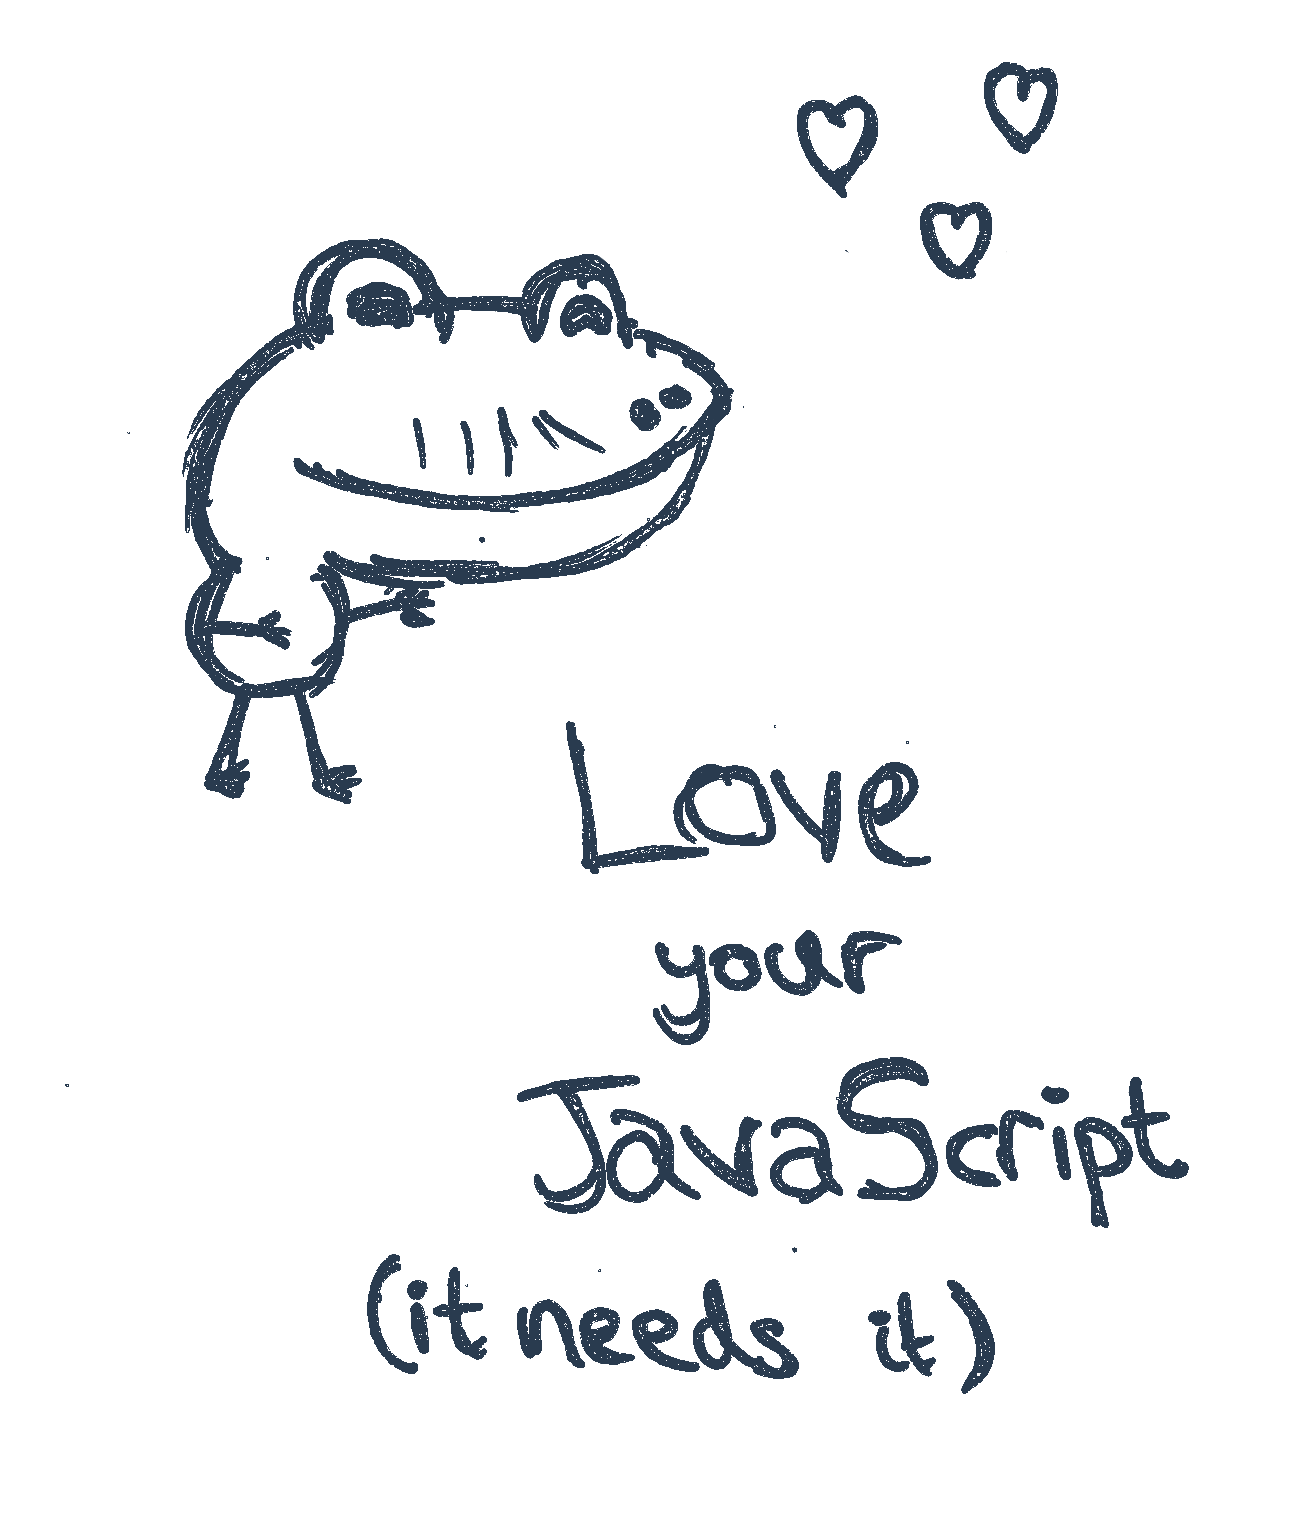 Love
your
JavaScript
(it needs it)